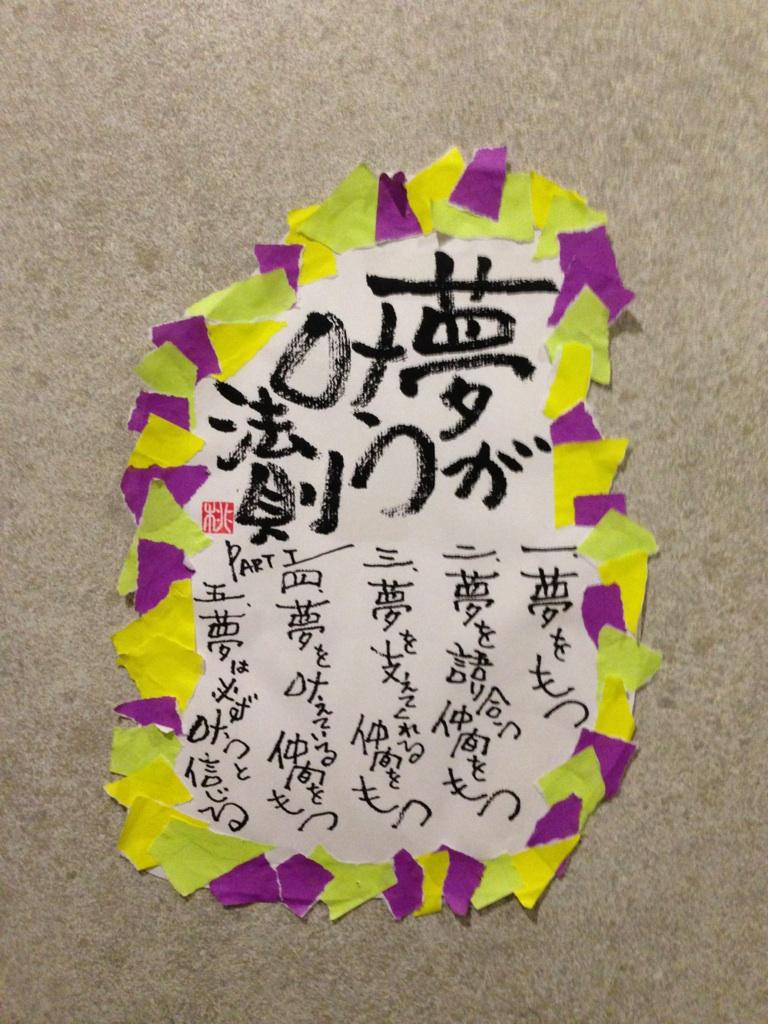 夢が
叶う
法則
桃
PART I
一、夢をもつ
二、夢を語り合う仲間をもつ
三、夢を支えてくれる仲間をもつ
四、夢を叶えている仲間をもつ
五、夢は必ず叶うと信じる